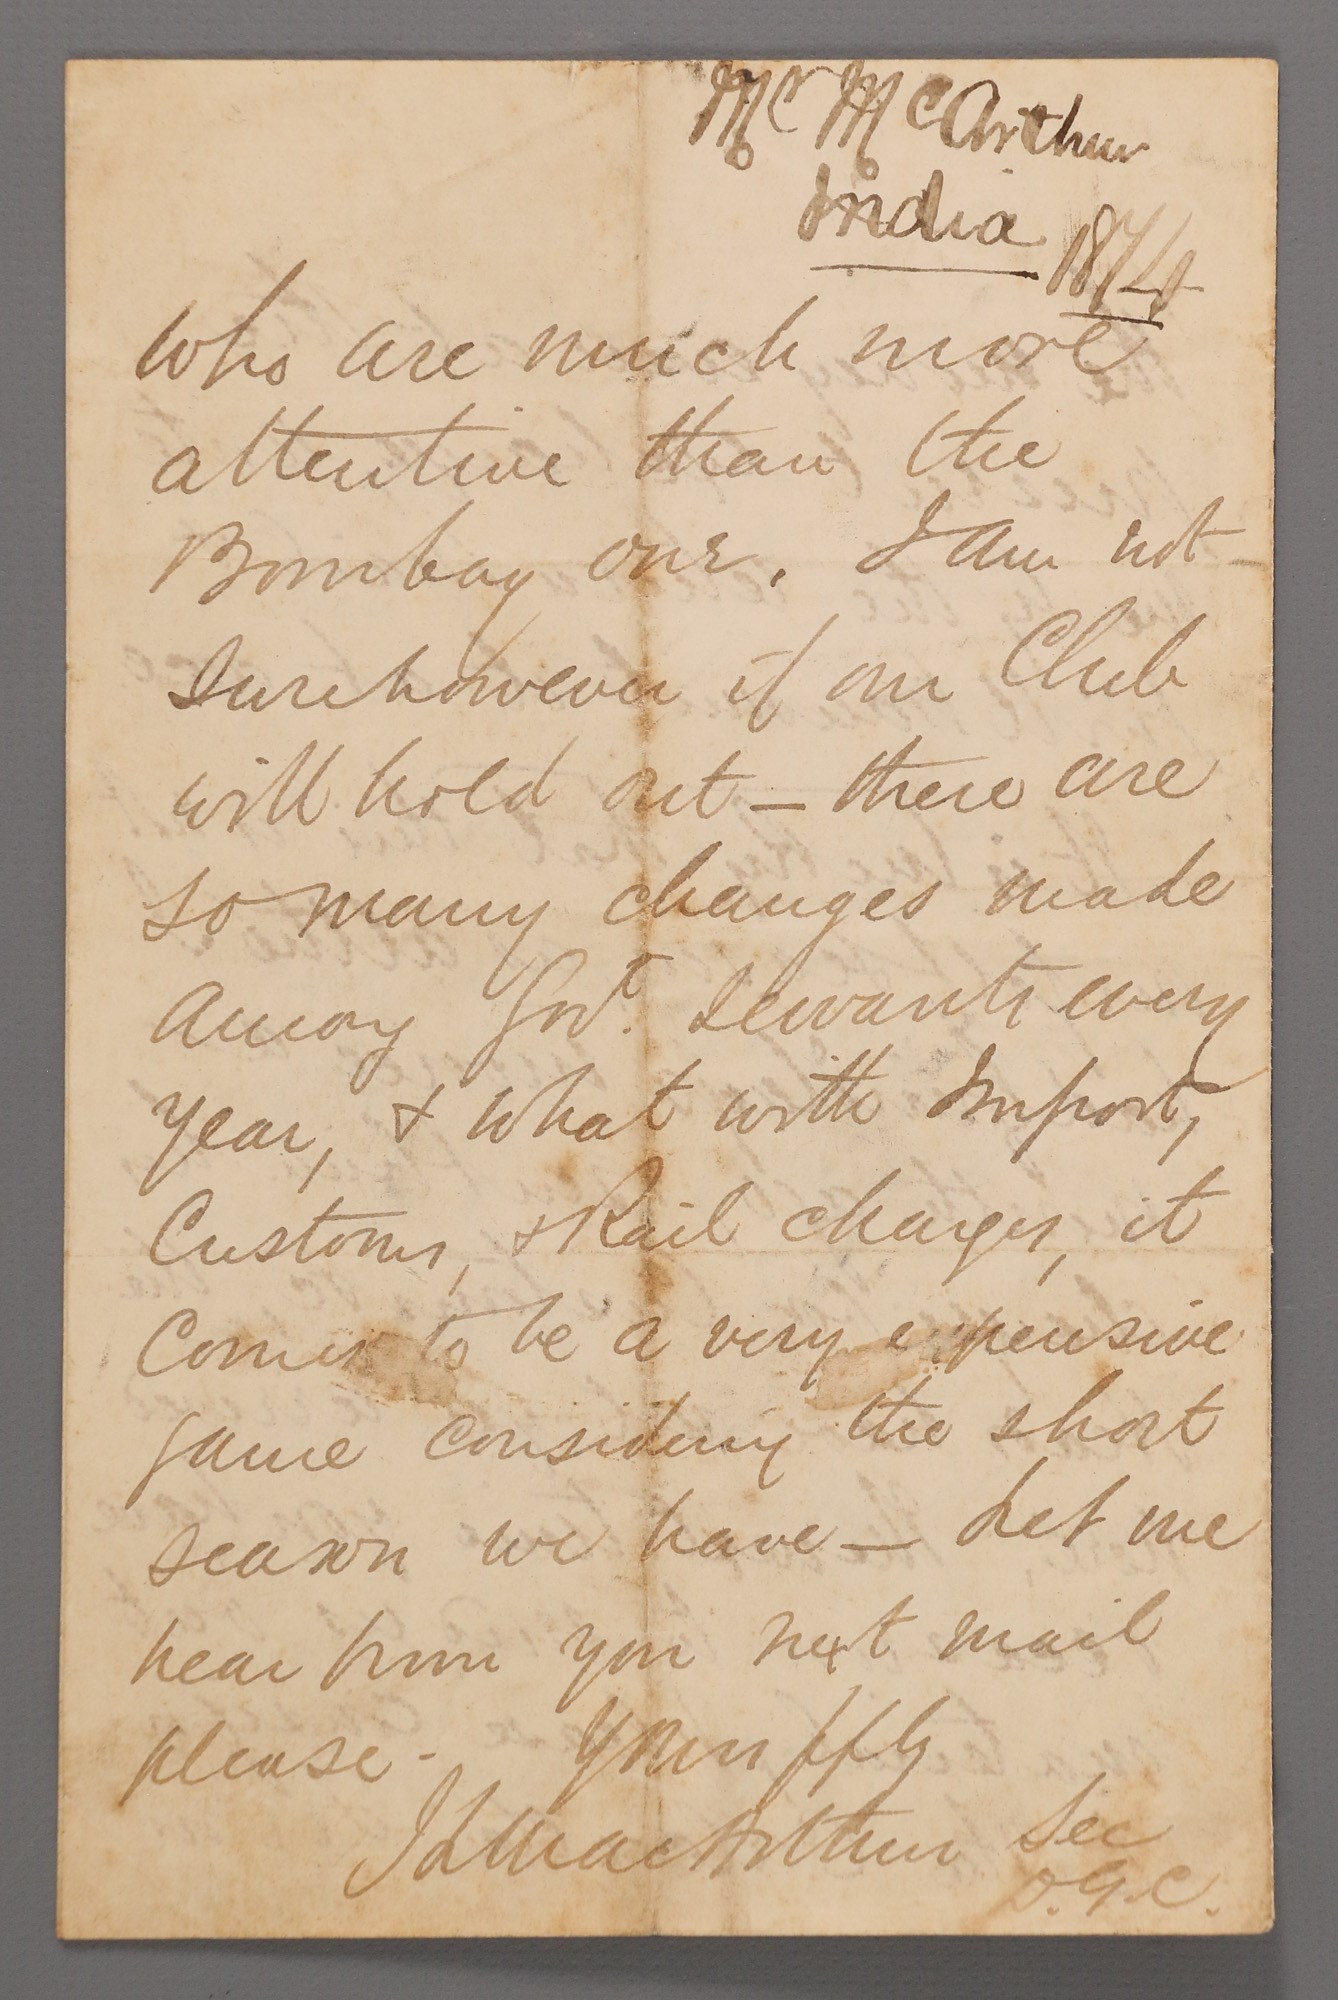 Mr McArthur
India 1874
who are much more
attentive than the
Bombay one. I am not
sure however if our Club
will hold out – there are
so many changes made
among Govt. Servants every
year, & what with Import,
Customs, & Rail charges, it
comes to be a very expensive
game considering the short
season we have – Let me
hear from you next mail
please – Yours ffly
MacArthur Sec
G.C.